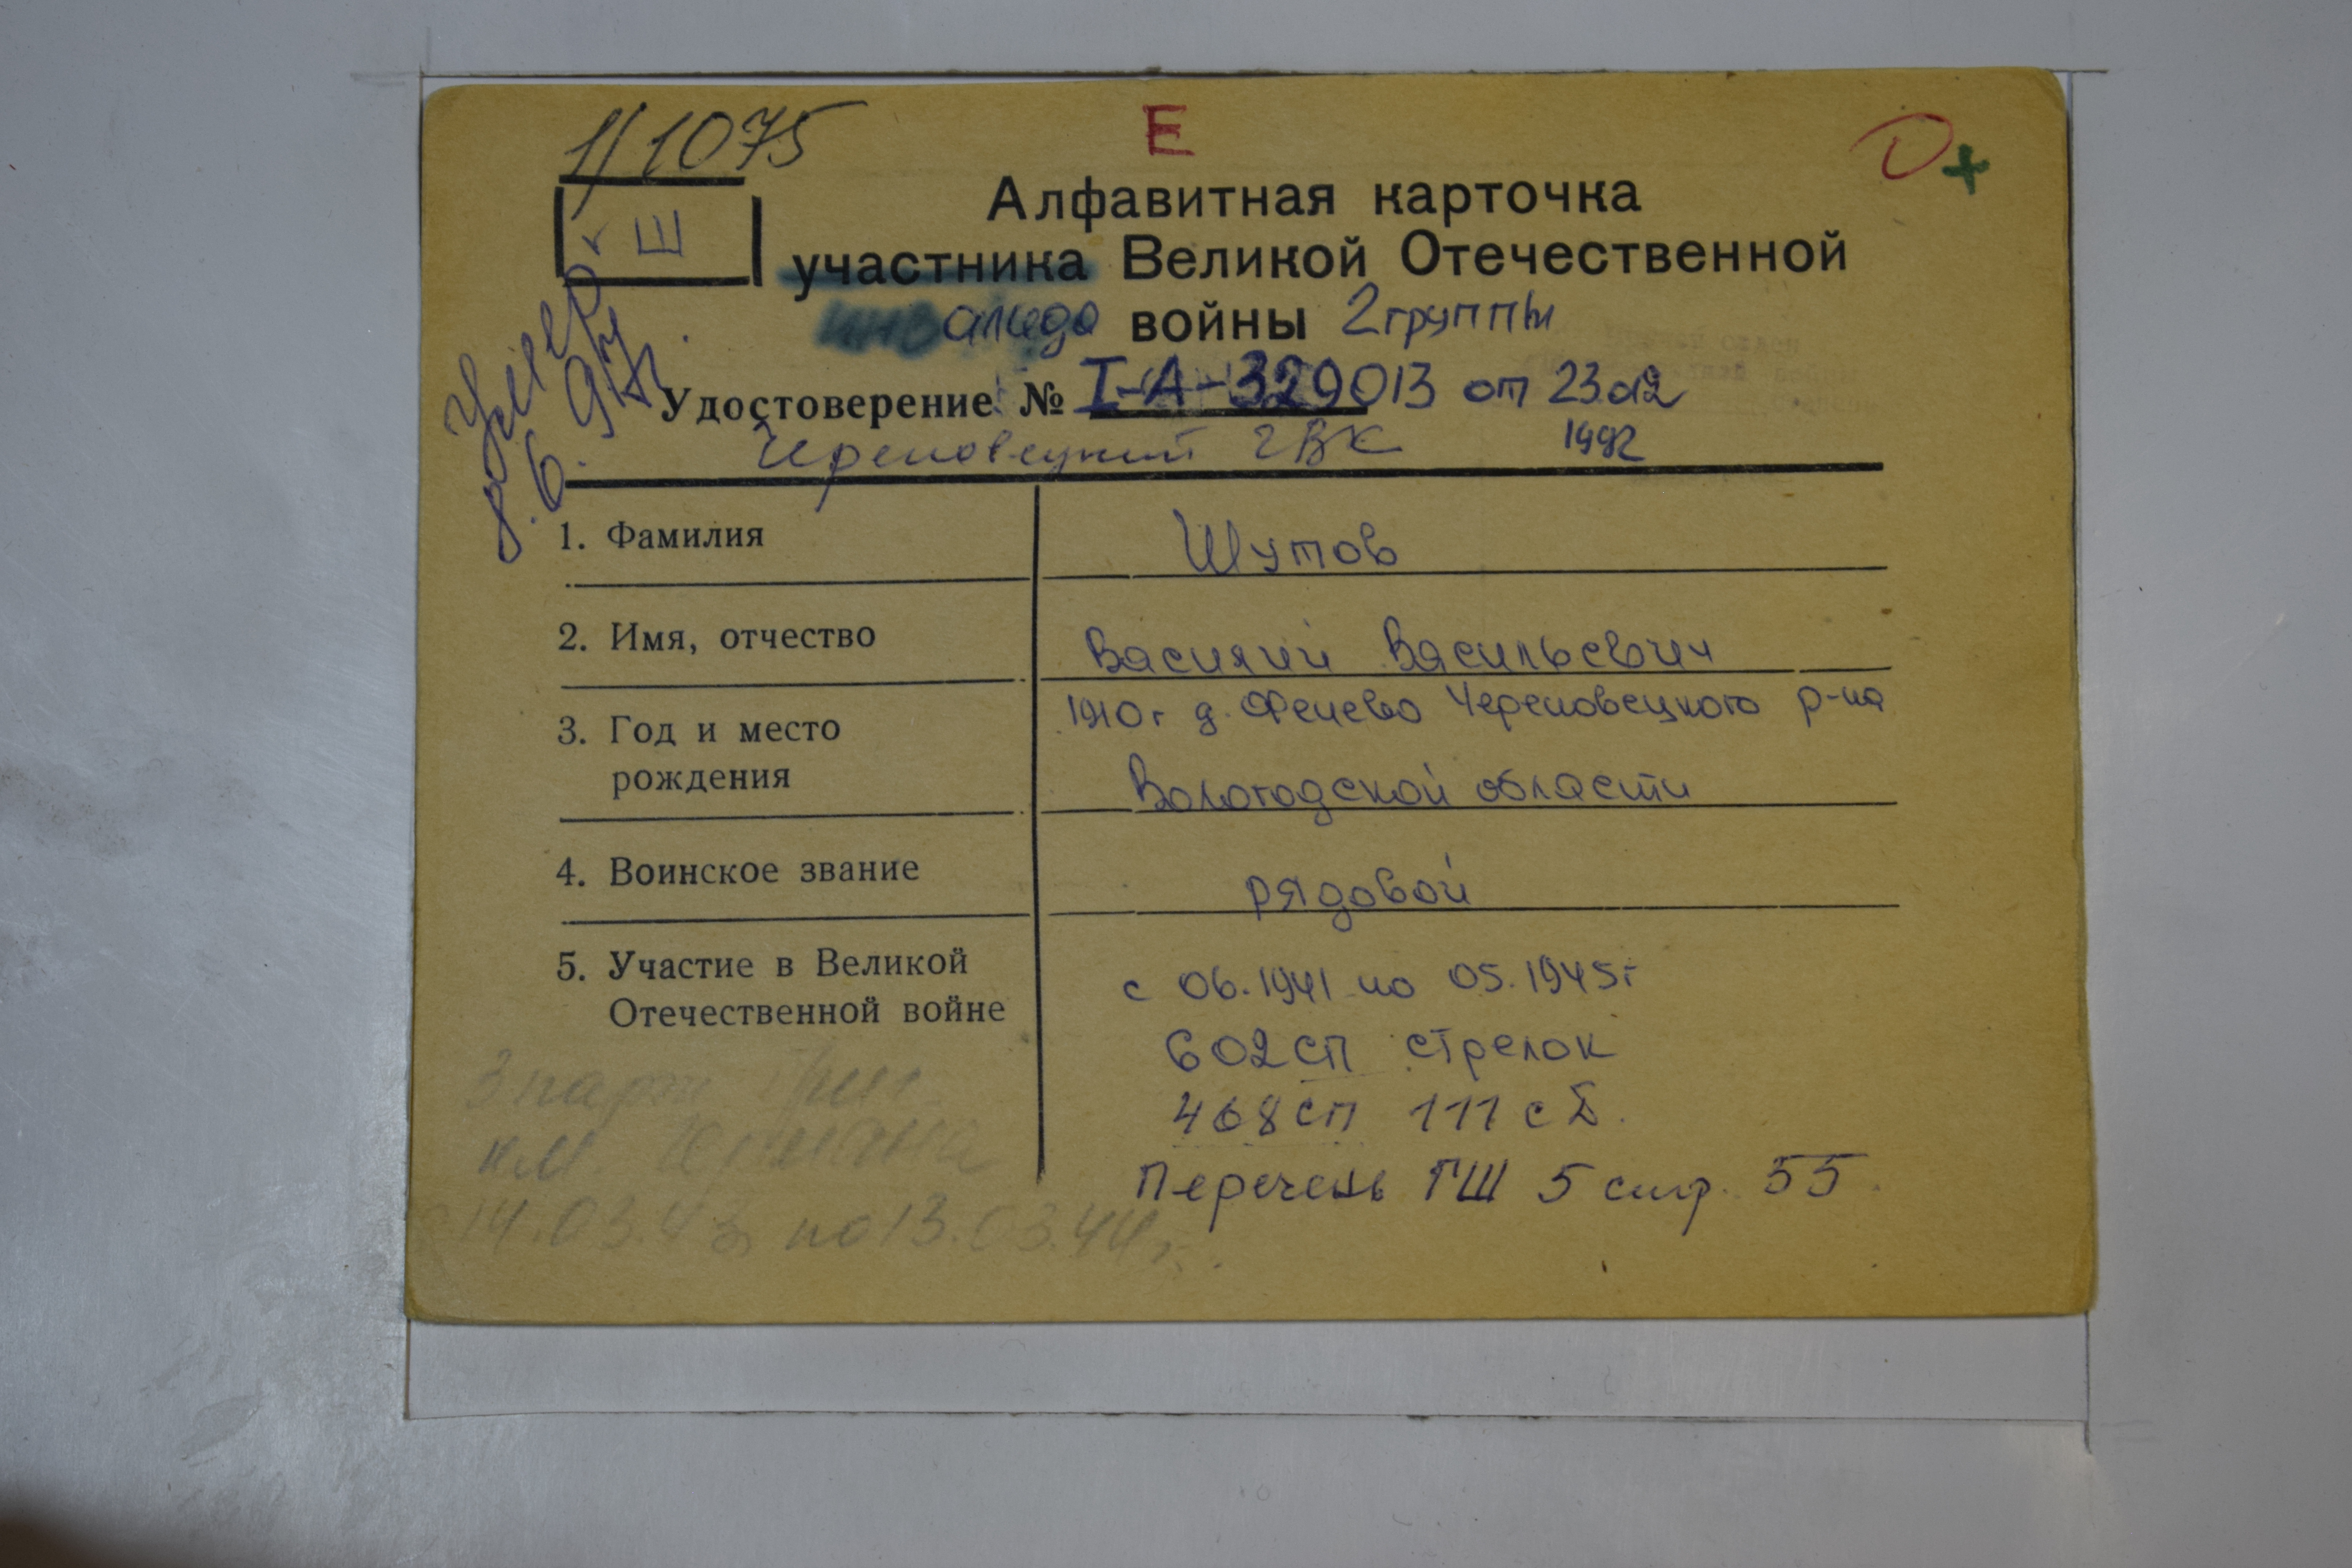 1/1075
Е
О+
Ш
Алфавитная карточка
участника Великой Отечественной
инвалида войны 2 группы
Удостоверение № I-А-329013 от 23.02
1992
Череповецкий ГВК
Умер
8.6.97г
1. Фамилия Шутов
2. Имя, отчество Василий Васильевич
3. Год и место 1910г д. Фенево Череповецкого р-на
рождения Вологодской области
4. Воинское звание рядовой
5. Участие в Великой с 06.1941 по 05.1945г
Отечественной войне
602 сп стрелок
468 сп 111 сб.
Перечень ГШ 5 стр. 55
3 парт
им.
14.03.43 по 13.03.44г.